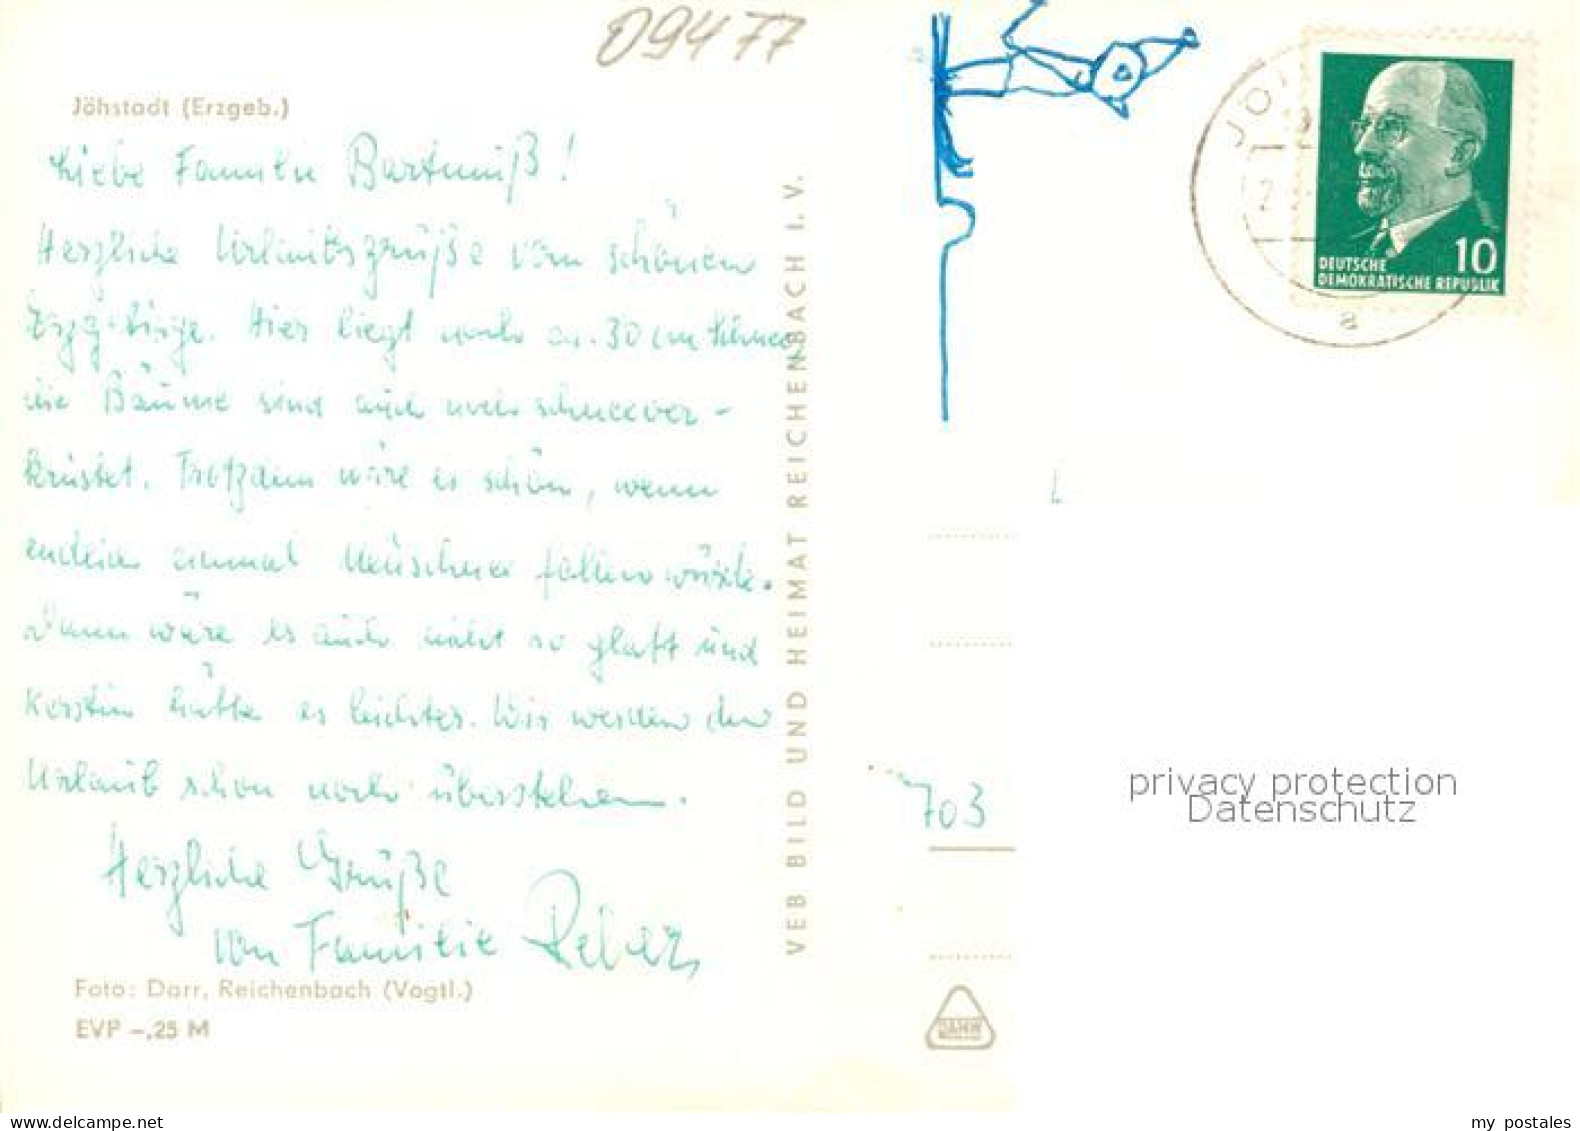 09477
Jöhstadt (Erzgeb.)
Liebe Familie Bartmuß!
Herzliche Urlaubsgrüße vom schönen
Erzgebirge. Hier liegt noch ca. 30 cm Schnee,
die Bäume sind auch noch schneever-
krüstet. Trotzdem wäre es schön, wenn
endlich einmal Neuschnee fallen würde.
Dann wäre es auch nicht so glatt und
Kerstin hätte es leichter. Wir werden den
Urlaub schon noch überstehen.
Herzliche Grüße
von Familie
Foto: Darr, Reichenbach (Vogtl.)
EVP –,25 M
VEB BILD UND HEIMAT REICHENBACH I. V.
10
DEUTSCHE
DEMOKRATISCHE REPUBLIK
a
703
privacy protection
Datenschutz
delcampe.net
my postales